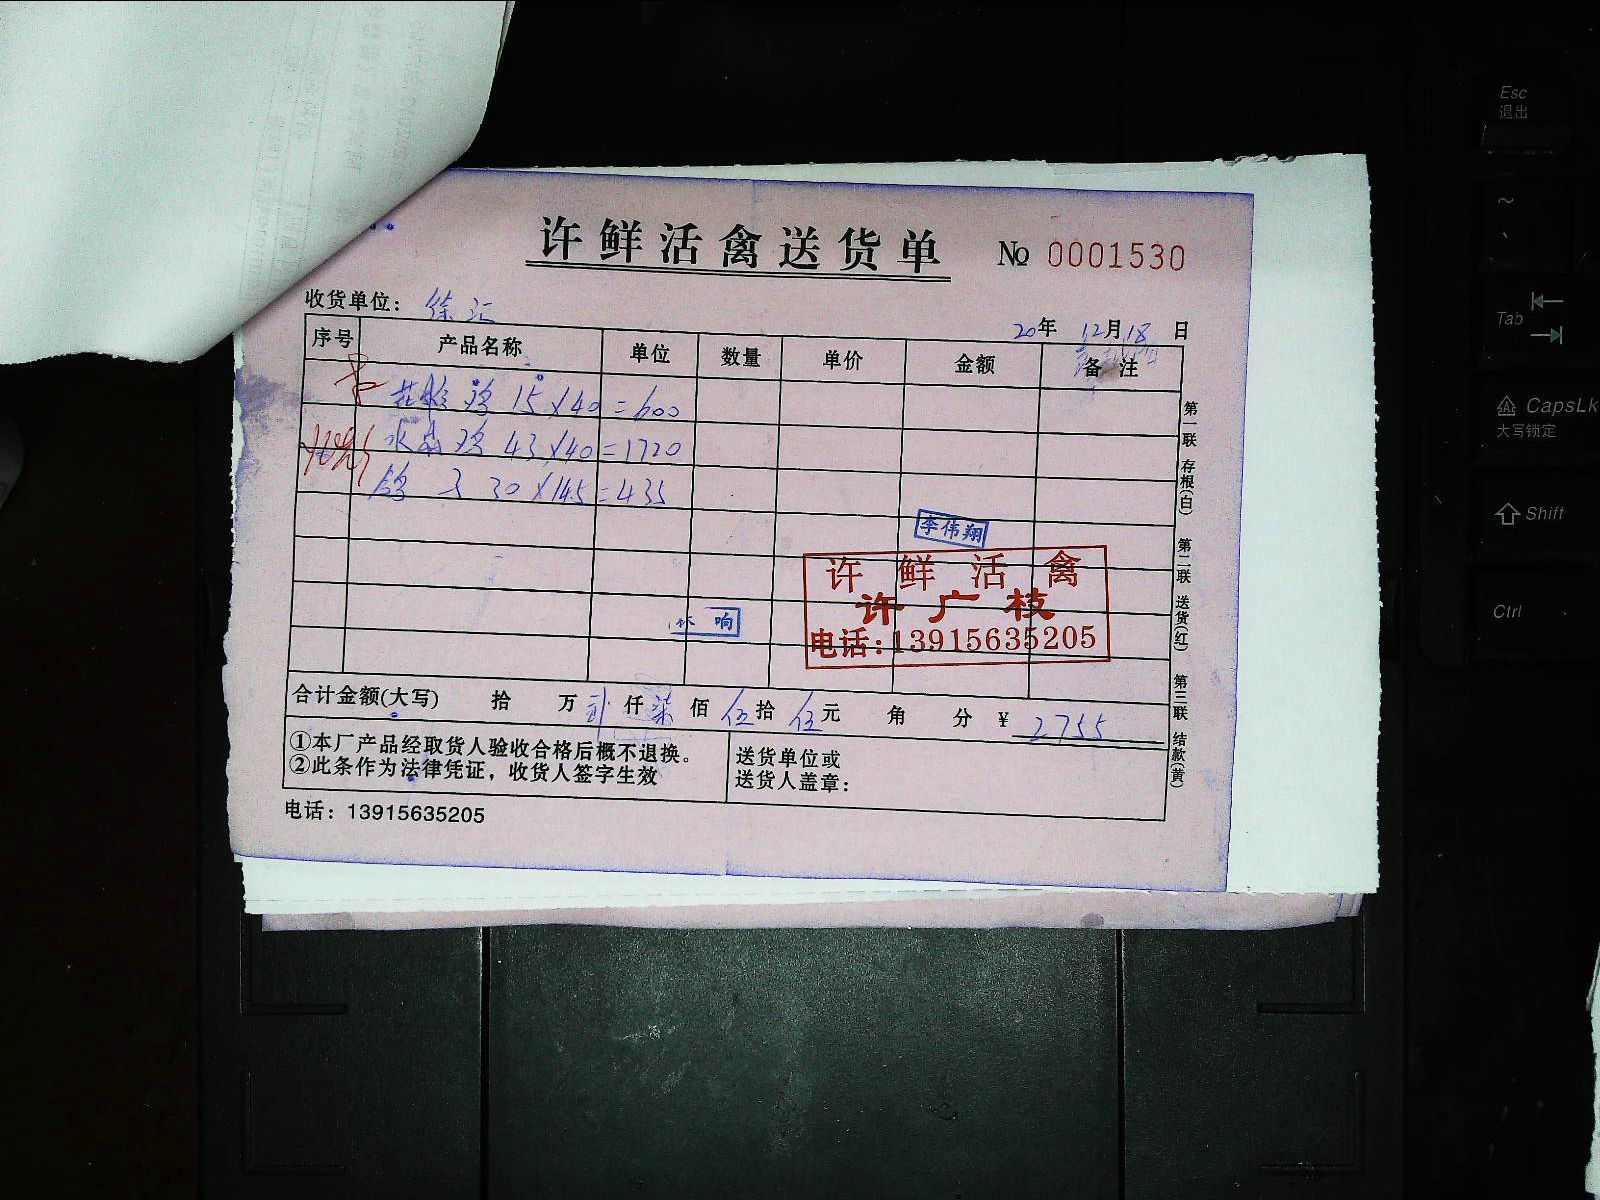 许鲜活禽送货单 № 0001530
收货单位： 徐汇
20年 12月 18 日
序号 产品名称 单位 数量 单价 金额 备注
鸡 15×40=600
水 鸡 43×40=1720
鸽子 30×14.5=435
李伟翔
许鲜活禽
许广枝
电话:13915635205
响
合计金额(大写) 拾 万 贰仟 柒佰 伍拾 伍元 角 分 ¥ 2755
①本厂产品经取货人验收合格后概不退换。
②此条作为法律凭证，收货人签字生效
送货单位或
送货人盖章：
电话：13915635205
第一联 存根(白) 第二联 送货(红) 第三联 结款(黄)
Esc
退出
~
、
Tab
CapsLk
大写锁定
Shift
Ctrl